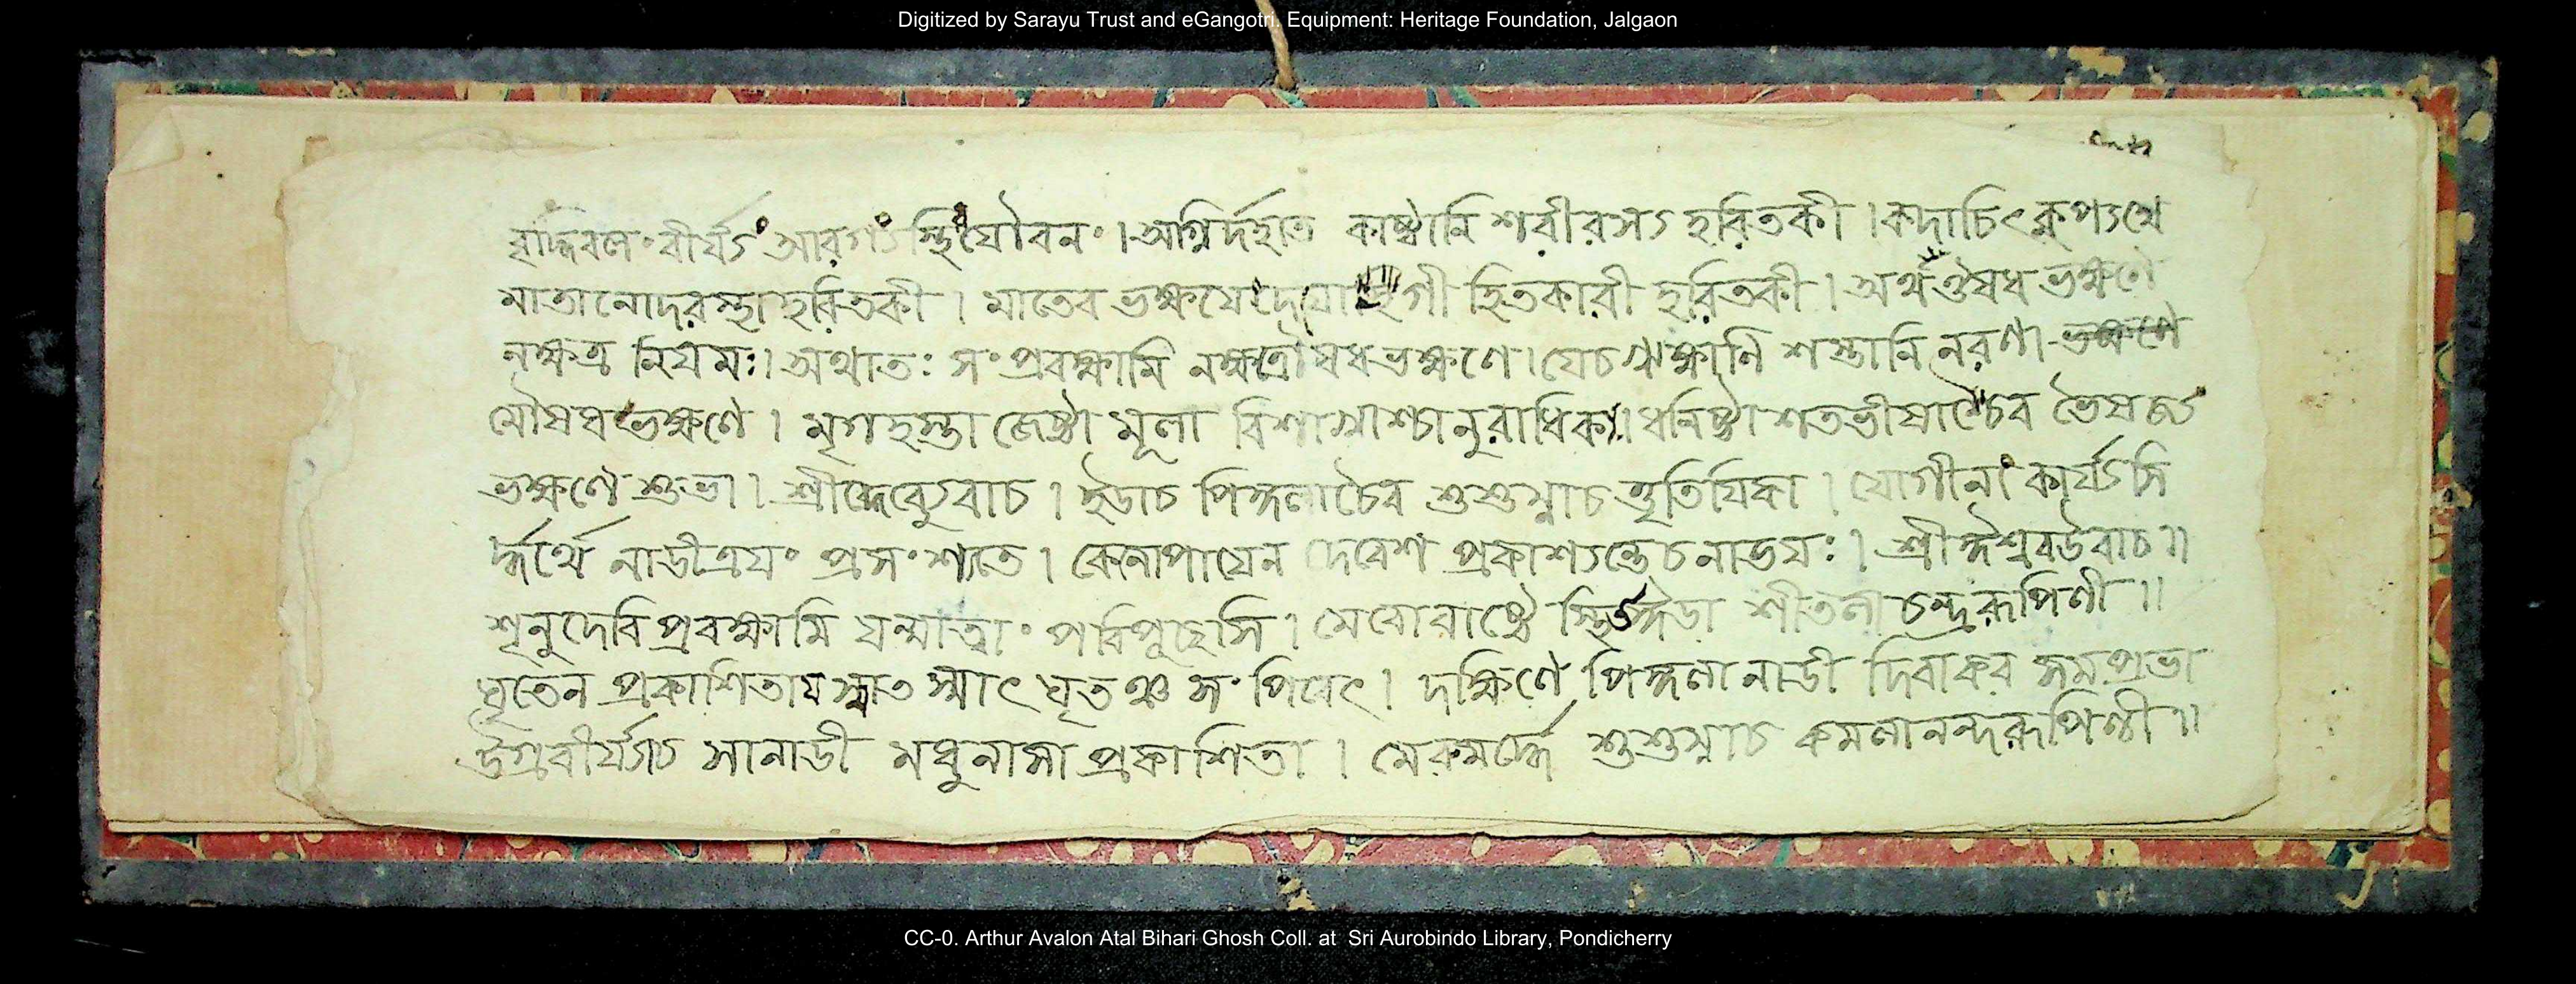 Digitized by Sarayu Trust and eGangotri. Equipment: Heritage Foundation, Jalgaon
বীর্য্যং স্থিংযৌবনং । অগ্নির্দহতি কাষ্ঠানি শরীরস্য হরিতকী । কদাচিৎ
মাতানোদরস্থা হরিতকী । মাতেব হিতকারী হরিতকী । অর্থঔষধ ভক্ষণে
নক্ষত্র নিয়মঃ। অথাতঃ সংপ্রবক্ষ্যামি নক্ষত্রৌষধভক্ষণে । যেচ ঋক্ষাণি শস্তানি নরণা
মৌষধভক্ষণে । মৃগহস্তা জেষ্ঠা মূলা ধনিষ্ঠা শতভীষাচৈব ভৈষজ্য
ভক্ষণে শুভা । শ্রীদেব্যুবাচ । ইডাচ পিঙ্গলাচৈব শুশুম্নাচ যোগীনাং কার্য্যসি
র্দ্ধর্থে নাডীত্রয়ং প্রসংশ্যতে । কেনোপায়েন দেবেশ প্রকাশ্যন্তেচনাডয়ঃ । শ্রীঈশ্বরউবাচ ॥
শৃনুদেবি প্রবক্ষ্যামি যন্মাত্বাং পরিপৃছসি । শীতলা চন্দ্ররূপিণী ॥
ঘৃতেন প্রকাশিতা ঘৃতঞ্চ সংপিবেৎ । দক্ষিণে পিঙ্গলা নাডী দিবাকর সমপ্রভা
উগ্রবীর্য্যাচ সানাডী মধুনাসা প্রকাশিতা । মেরুমর্দ্ধে শুশুম্নাচ কমলানন্দরূপিণী ॥
CC-0. Arthur Avalon Atal Bihari Ghosh Coll. at Sri Aurobindo Library, Pondicherry